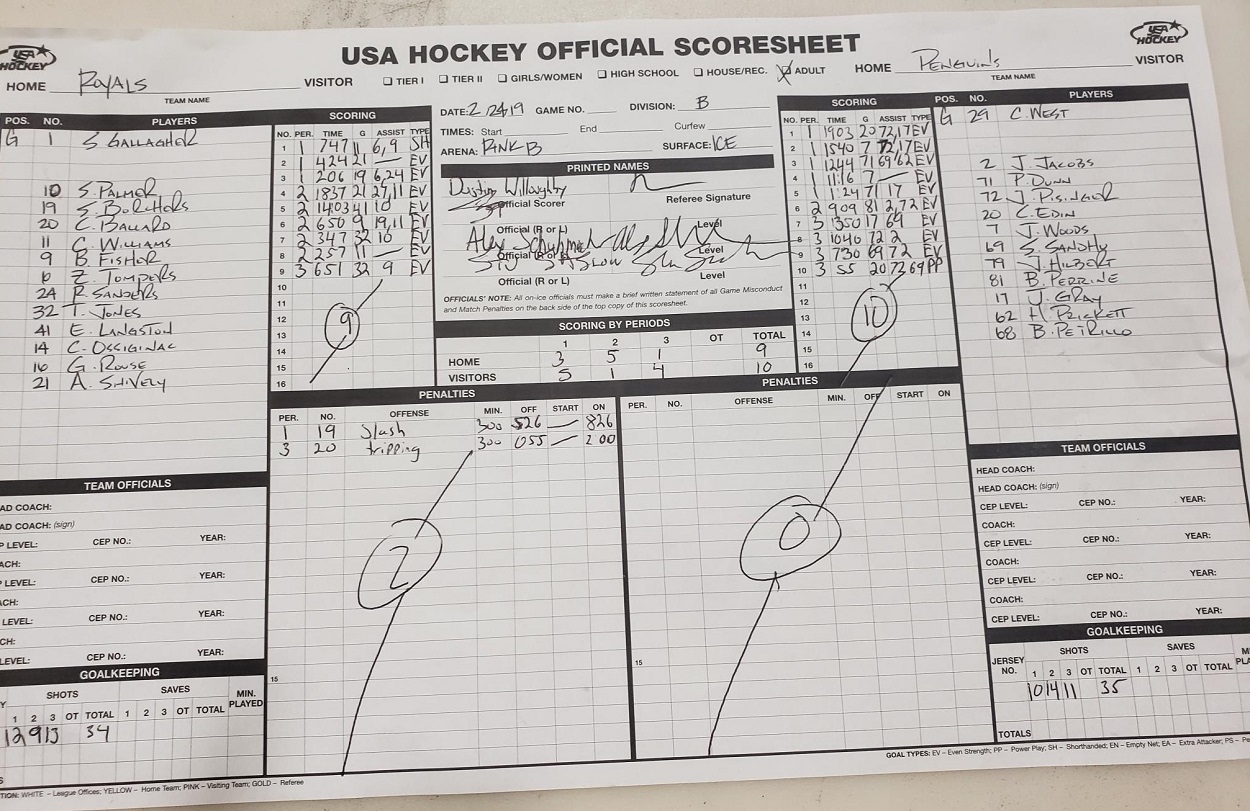 USA HOCKEY
USA HOCKEY OFFICIAL SCORESHEET
USA HOCKEY
HOME ROYALS VISITOR
TEAM NAME
TIER I TIER II GIRLS/WOMEN HIGH SCHOOL HOUSE/REC. ADULT
HOME PENGUINS VISITOR
TEAM NAME
POS. NO. PLAYERS
G 1 S GALLAGHER
10 S. PALMER
19 S. BORCHERS
20 C. BALLARD
11 C. WILLIAMS
9 B. FISHER
6 Z. TOMPERS
24 R. SANDERS
32 T. JONES
41 E. LANGSTON
14 C. OSSIGINAC
16 G. ROUSE
21 A. SHIVELY
SCORING
NO. PER. TIME G ASSIST TYPE
1 1 747 11 6,9 SH
2 1 424 21 — EV
3 1 206 19 6,24 EV
4 2 1837 21 27,11 EV
5 2 1403 41 10 EV
6 2 650 9 19,11 EV
7 2 347 32 10 EV
8 2 257 11 — EV
9 3 651 32 9 EV
10
11
12
13
14
15
16
9
DATE: 2/24/19 GAME NO. DIVISION: B
TIMES: Start End Curfew
ARENA: RINK B SURFACE: ICE
PRINTED NAMES
Dustin Willoughby
Official Scorer Referee Signature
Official (R or L) Level
Official (R or L) Level
Official (R or L) Level
OFFICIALS' NOTE: All on-ice officials must make a brief written statement of all Game Misconduct
and Match Penalties on the back side of the top copy of this scoresheet.
SCORING BY PERIODS
1 2 3 OT TOTAL
HOME 3 5 1 9
VISITORS 5 1 4 10
SCORING
NO. PER. TIME G ASSIST TYPE
1 1 1903 20 72,17 EV
2 1 1540 7 72,17 EV
3 1 1244 71 69,62 EV
4 1 11:16 7 — EV
5 1 1:24 71 17 EV
6 2 909 81 2,72 EV
7 3 1350 17 69 EV
8 3 1040 72 2 EV
9 3 730 69 72 EV
10 3 55 20 72 69 PP
11
12
13
14
15
16
10
POS. NO. PLAYERS
G 29 C. WEST
2 J. JACOBS
71 P. DUNN
72 J. PISINGER
20 C. EDIN
7 J. WOODS
69 S. SANDHU
79 J. HILBERT
81 B. PERRINE
17 J. GRAY
62 H. PRICKETT
68 B. PETRILLO
PENALTIES
PER. NO. OFFENSE MIN. OFF START ON
1 19 Slash 300 526 — 826
3 20 tripping 300 055 — 200
2
15
PENALTIES
PER. NO. OFFENSE MIN. OFF START ON
0
15
TEAM OFFICIALS
AD COACH:
AD COACH: (sign)
P LEVEL: CEP NO.: YEAR:
ACH:
P LEVEL: CEP NO.: YEAR:
ACH:
LEVEL: CEP NO.: YEAR:
CH:
LEVEL: CEP NO.: YEAR:
GOALKEEPING
SHOTS SAVES MIN. PLAYED
Y 1 2 3 OT TOTAL 1 2 3 OT TOTAL
12 9 13 34
TEAM OFFICIALS
HEAD COACH:
HEAD COACH: (sign)
CEP LEVEL: CEP NO.: YEAR:
COACH:
CEP LEVEL: CEP NO.: YEAR:
COACH:
CEP LEVEL: CEP NO.: YEAR:
COACH:
CEP LEVEL: CEP NO.: YEAR:
GOALKEEPING
JERSEY NO. SHOTS SAVES
1 2 3 OT TOTAL 1 2 3 OT TOTAL
10 14 11 35
TOTALS
GOAL TYPES: EV – Even Strength; PP – Power Play; SH – Shorthanded; EN – Empty Net; EA – Extra Attacker; PS – Pe
TION: WHITE – League Offices; YELLOW – Home Team; PINK – Visiting Team; GOLD – Referee